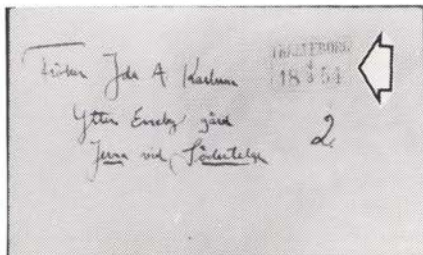 Fröken Ida A Karlsson
Ytter Eneby gård
Jerna vid Södertelge
TRELLEBORG
18 4/9 54
2